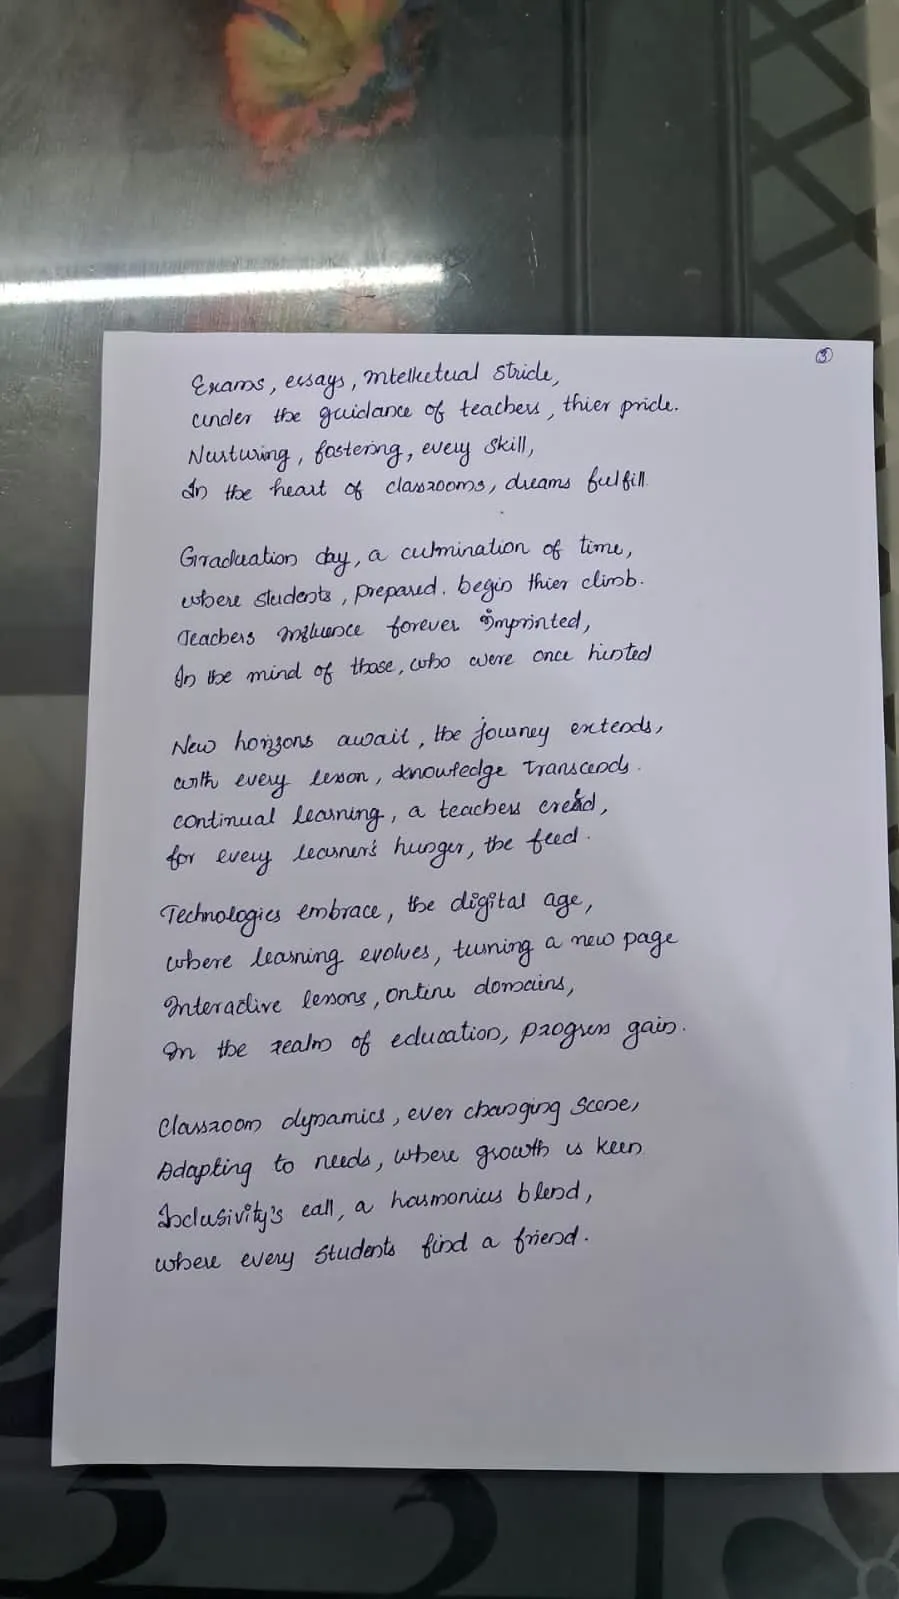 ③
Exams, essays, intellectual stride,
under the guidance of teachers, thier pride.
Nurturing, fostering, every skill,
In the heart of classrooms, dreams fulfill.
Graduation day, a culmination of time,
where students, prepared. begin thier climb.
Teachers influence forever imprinted,
In the mind of those, who were once hinted
New horizons await, the journey extends,
with every lesson, knowledge transcends.
continual learning, a teachers
for every learner's hunger, the feed.
Technologies embrace, the digital age,
where learning evolves, turning a new page
Interactive lessons, online domains,
In the realm of education, progress gain.
Classroom dynamics, ever changing scene,
Adapting to needs, where growth is keen
Inclusivity's call, a harmonius blend,
where every students find a friend.